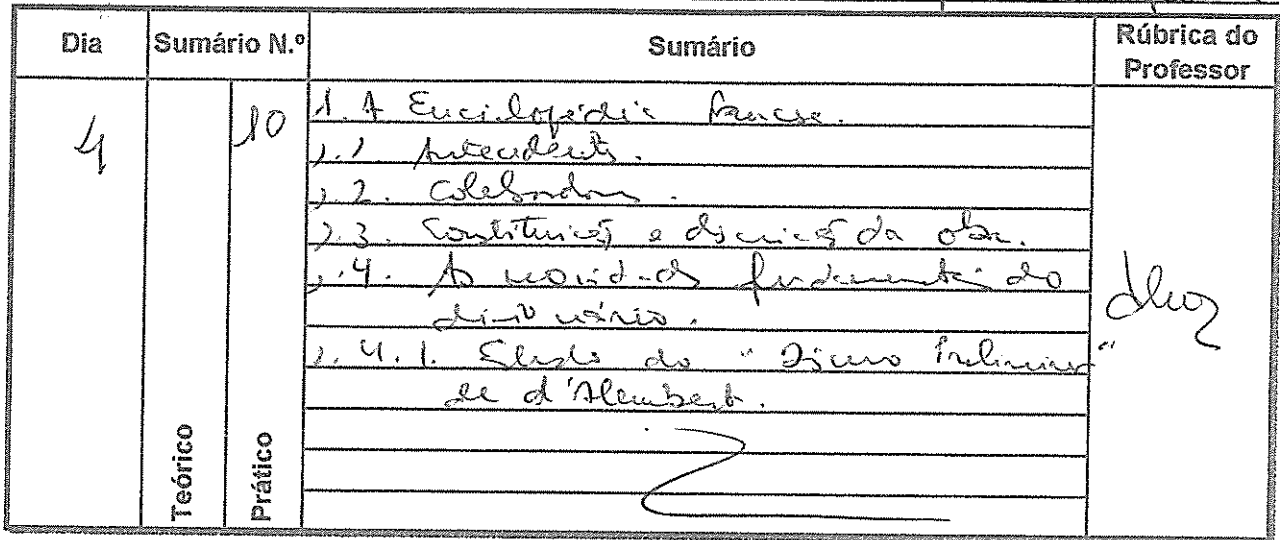 Dia Sumário N.º Sumário Rúbrica do Professor
4 10
1. A Enciclopédia francesa.
1.1. Antecedentes.
1.2. Colaboradores.
1.3. Constituição e descrição da obra.
1.4. As novidades fundamentais do
dicionário.
1.4.1. Estudo do "Discurso Preliminar"
de d'Alembert.
Teórico
Prático